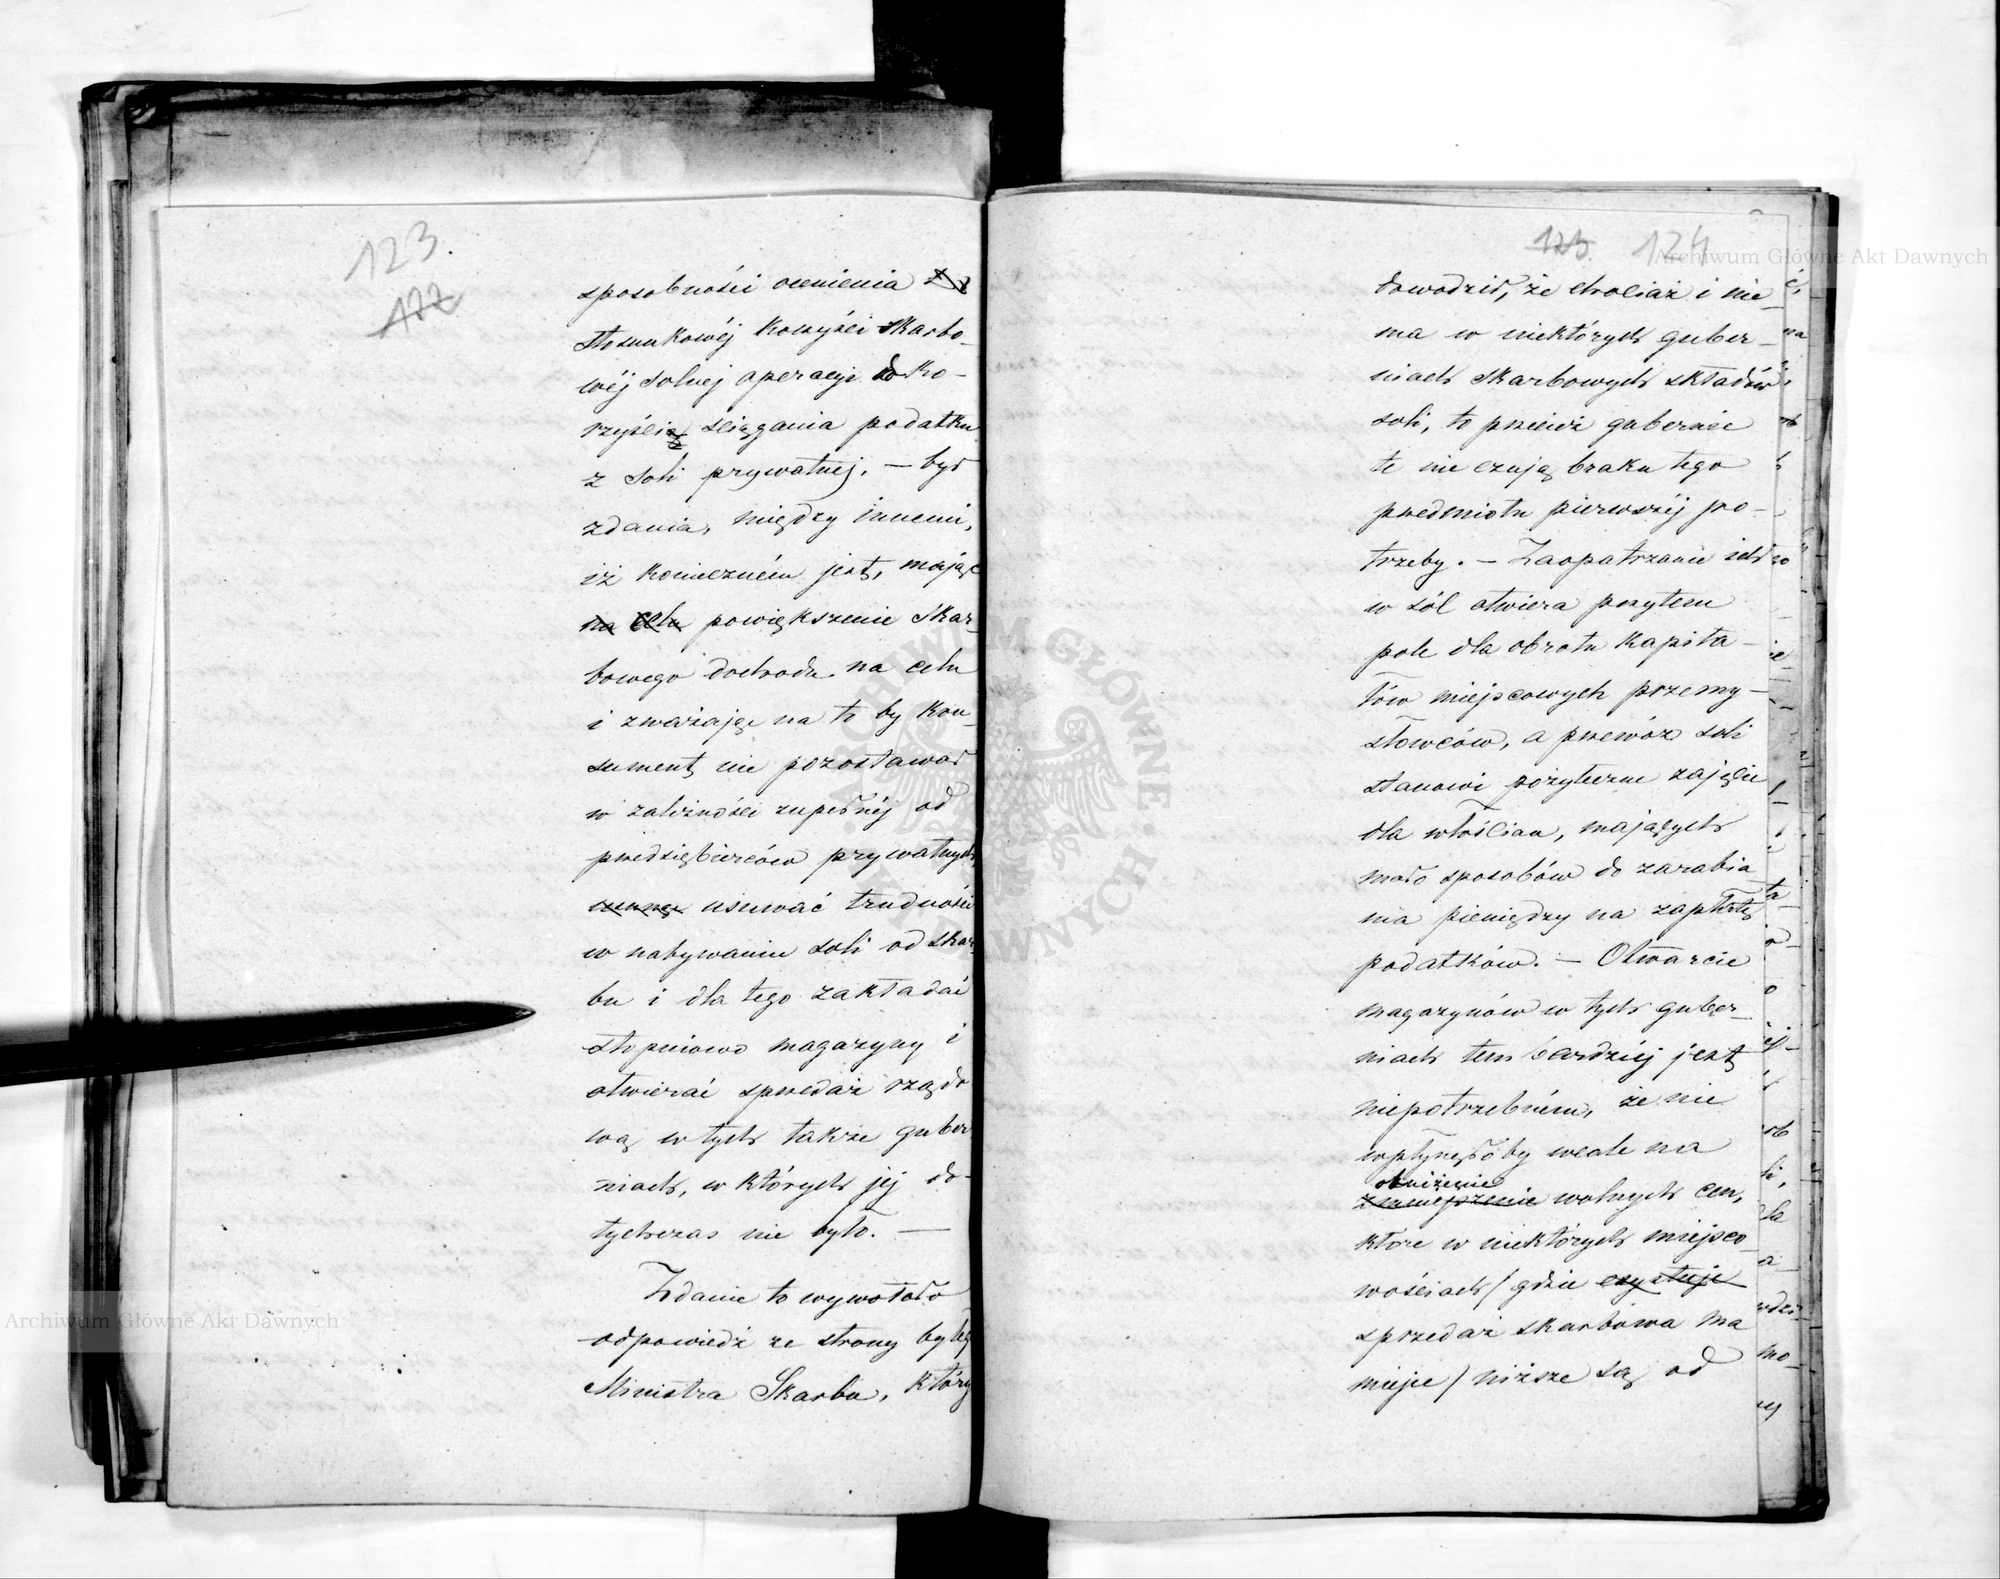 123.
122
sposobności ocenienia
stosunkowéj korzyści skarbo-
wéj solnej operacyi do ko-
rzyści ściągania podatku
z soli prywatnej, — był
zdania, między innemi,
iż konieczném jest, mając
na celu powiększenie skar-
bowego dochodu na celu
i zważając na to by kon-
sument nie pozostawał
w zależności zupełnéj od
przedsiębierców prywatnych
usuwać trudności
w nabywaniu soli od skar-
bu i dla tego zakładać
stopniowo magazyny i
otwierać sprzedaż rządo
wą w tych także guber
niach, w których jej do-
tychczas nie było. —
Zdanie to wywołało
odpowiedź ze strony byłeg
Ministra Skarbu, który
123. 124
dowodził, że chociaż i nie-
ma w niektórych guber-
niach skarbowych składów
soli, to przecież gubernie
te nie czują braku tego
przedmiotu pierwszéj po-
trzeby. — Zaopatrzanie ich
w sól otwiera przytem
pole dla obrotu kapita-
łów miejscowych przemy-
słowców, a przewóz soli
stanowi pożyteczne zajęcie
dla włościan, mających
mało sposobów do zarabia
nia pieniędzy na zapłatę
podatków. — Otwarcie
magazynów w tych guber-
niach tem bardziéj jest
niepotrzebném, że nie
wpłynęłoby wcale na
obniżenie
zmniejszenie wolnych cen,
które w niektórych miejsco
wościach / gdzie egzystuje
sprzedaż skarbowa ma
miejsce / niższe są od